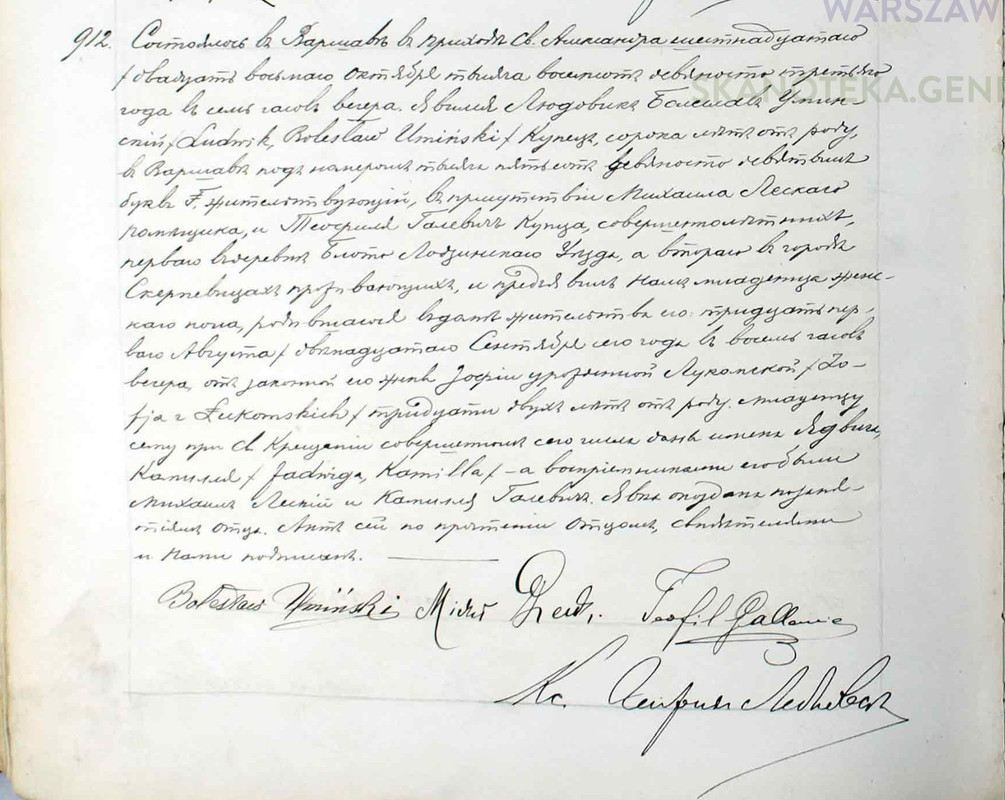 WARSZAW
SKANOTEKA.GENE
912. Состоялось въ Варшавѣ въ приходѣ Св. Александра шестнадцатаго
/ двадцать восьмаго Октября тысяча восемьсотъ девяносто третьяго
года въ семь часовъ вечера. Явился Людовикъ Болеславъ Умин-
скій / Ludwik, Bolesław Umiński / Купецъ, сорока лѣтъ отъ роду,
въ Варшавѣ подъ номеромъ тысяча пятьсотъ девяносто девятымъ
буква F. жительствующій, въ присутствіи Михаила Лескаго
помѣщика, и Теофиля Галевичъ Купца, совершеннолѣтнихъ,
перваго въ деревнѣ Блото Лодзинскаго Уѣзда, а втораго въ городѣ
Скерневицахъ проживающихъ, и предъявилъ Намъ младенца жен-
скаго пола, родившагося въ домѣ жительства его: тридцать пер-
ваго Августа / двѣнадцатаго Сентября сего года въ восемь часовъ
вечера, отъ законной его жены Зофіи урожденной Лукомской / Zo-
fja z Łukomskich / тридцати двухъ лѣтъ отъ роду. Младенцу
сему при Св. Крещеніи совершенномъ сего числа даны имена Ядвига,
Камилля / Jadwiga, Kamilla / – а воспріемниками его были
Михаилъ Лескій и Камилля Галевичъ. Явка опоздана по заня-
тіямъ отца. Актъ сей по прочтеніи Отцомъ, свидѣтелями
и Нами подписанъ.
Bolesław Umiński Teofil
Кс.